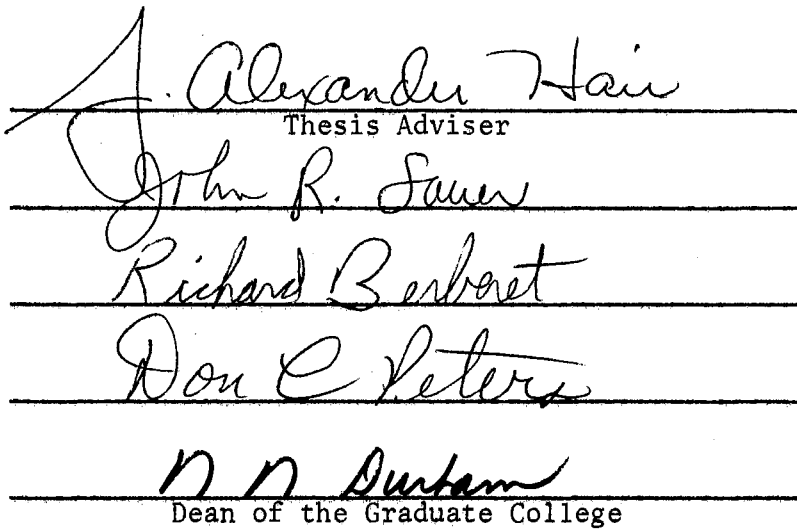 J. Alexander Hair
Thesis Adviser
John R. Sauer
Richard Berberet
Don C Peters
N N Durham
Dean of the Graduate College